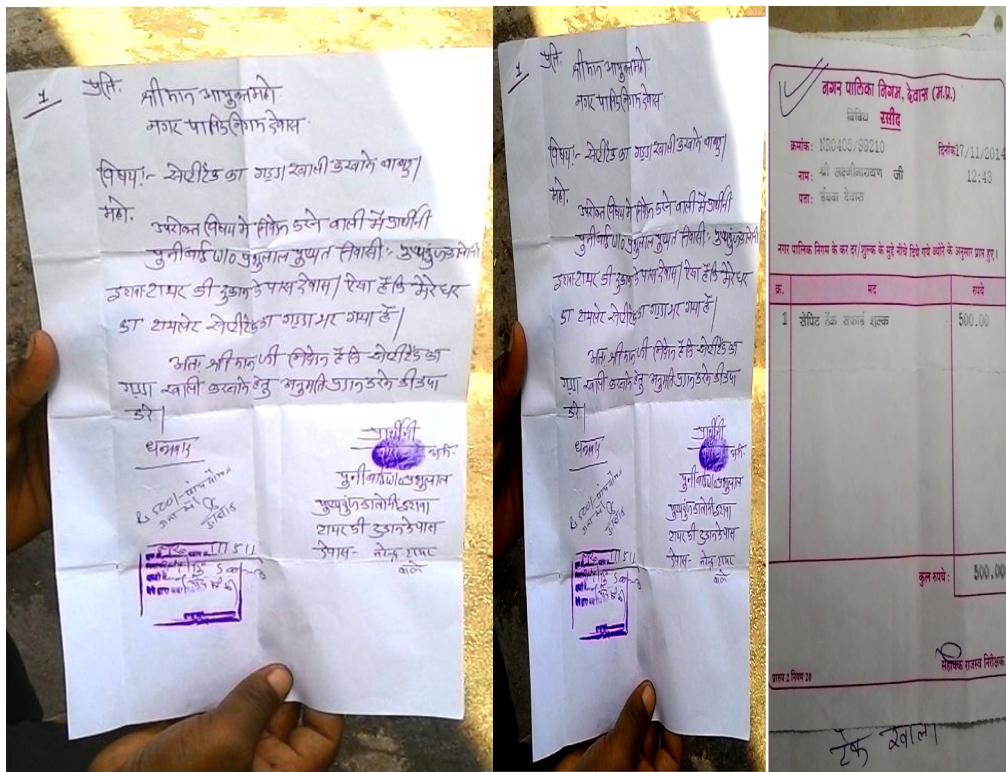 1
प्रति.
श्रीमान आयुक्त महो
नगर पालिक निगम देवास
विषय:- सेप्टीटैंक का गड्डा खाली करवाने बाबद्।
महो.
उपरोक्त विषय में निवेदन करने वाली में प्रार्थीनी
पुनीबाई W/o प्रभुलाल निवासी:-
टायर की दुकान के पास देवास। ऐसा है कि मेरे घर
का टायलेट सेप्टीटैंक का गड्डा भर गया है।
अतः श्रीमान जी निवेदन है कि सेप्टीटैंक का
गड्डा खाली करवाने हेतु अनुमति प्रदान करने की कृपा
करे।
धन्यवाद
प्रार्थीनी
पुनीबाई W/o प्रभुलाल
टायर की दुकान के पास
देवास-
वाले
1
प्रति.
श्रीमान आयुक्त महो
नगर पालिक निगम देवास
विषय:- सेप्टीटैंक का गड्डा खाली करवाने बाबद्।
महो.
उपरोक्त विषय में निवेदन करने वाली में प्रार्थीनी
पुनीबाई W/o प्रभुलाल निवासी:-
टायर की दुकान के पास देवास। ऐसा है कि मेरे घर
का टायलेट सेप्टीटैंक का गड्डा भर गया है।
अतः श्रीमान जी निवेदन है कि सेप्टीटैंक का
गड्डा खाली करवाने हेतु अनुमति प्रदान करने की कृपा
करे।
धन्यवाद
प्रार्थीनी
पुनीबाई W/o प्रभुलाल
टायर की दुकान के पास
देवास-
वाले
नगर पालिका निगम, देवास (म.प्र.)
विविध रसीद
क्रमांक: NR0405/99210 दिनांक 17/11/2014
नाम: श्री लक्ष्मीनारायण जी 12:43
पता: देवास
नगर पालिक निगम के कर दर/शुल्क के मुद्दे नीचे दिये गये ब्योरे के अनुसार प्राप्त हुए।
क्र. मद रुपये
1 सेप्टि टैंक सफाई शुल्क 500.00
कुल रुपये: 500.00
सहायक राजस्व निरीक्षक
प्रारूप 2 नियम 20
टेंक खाली